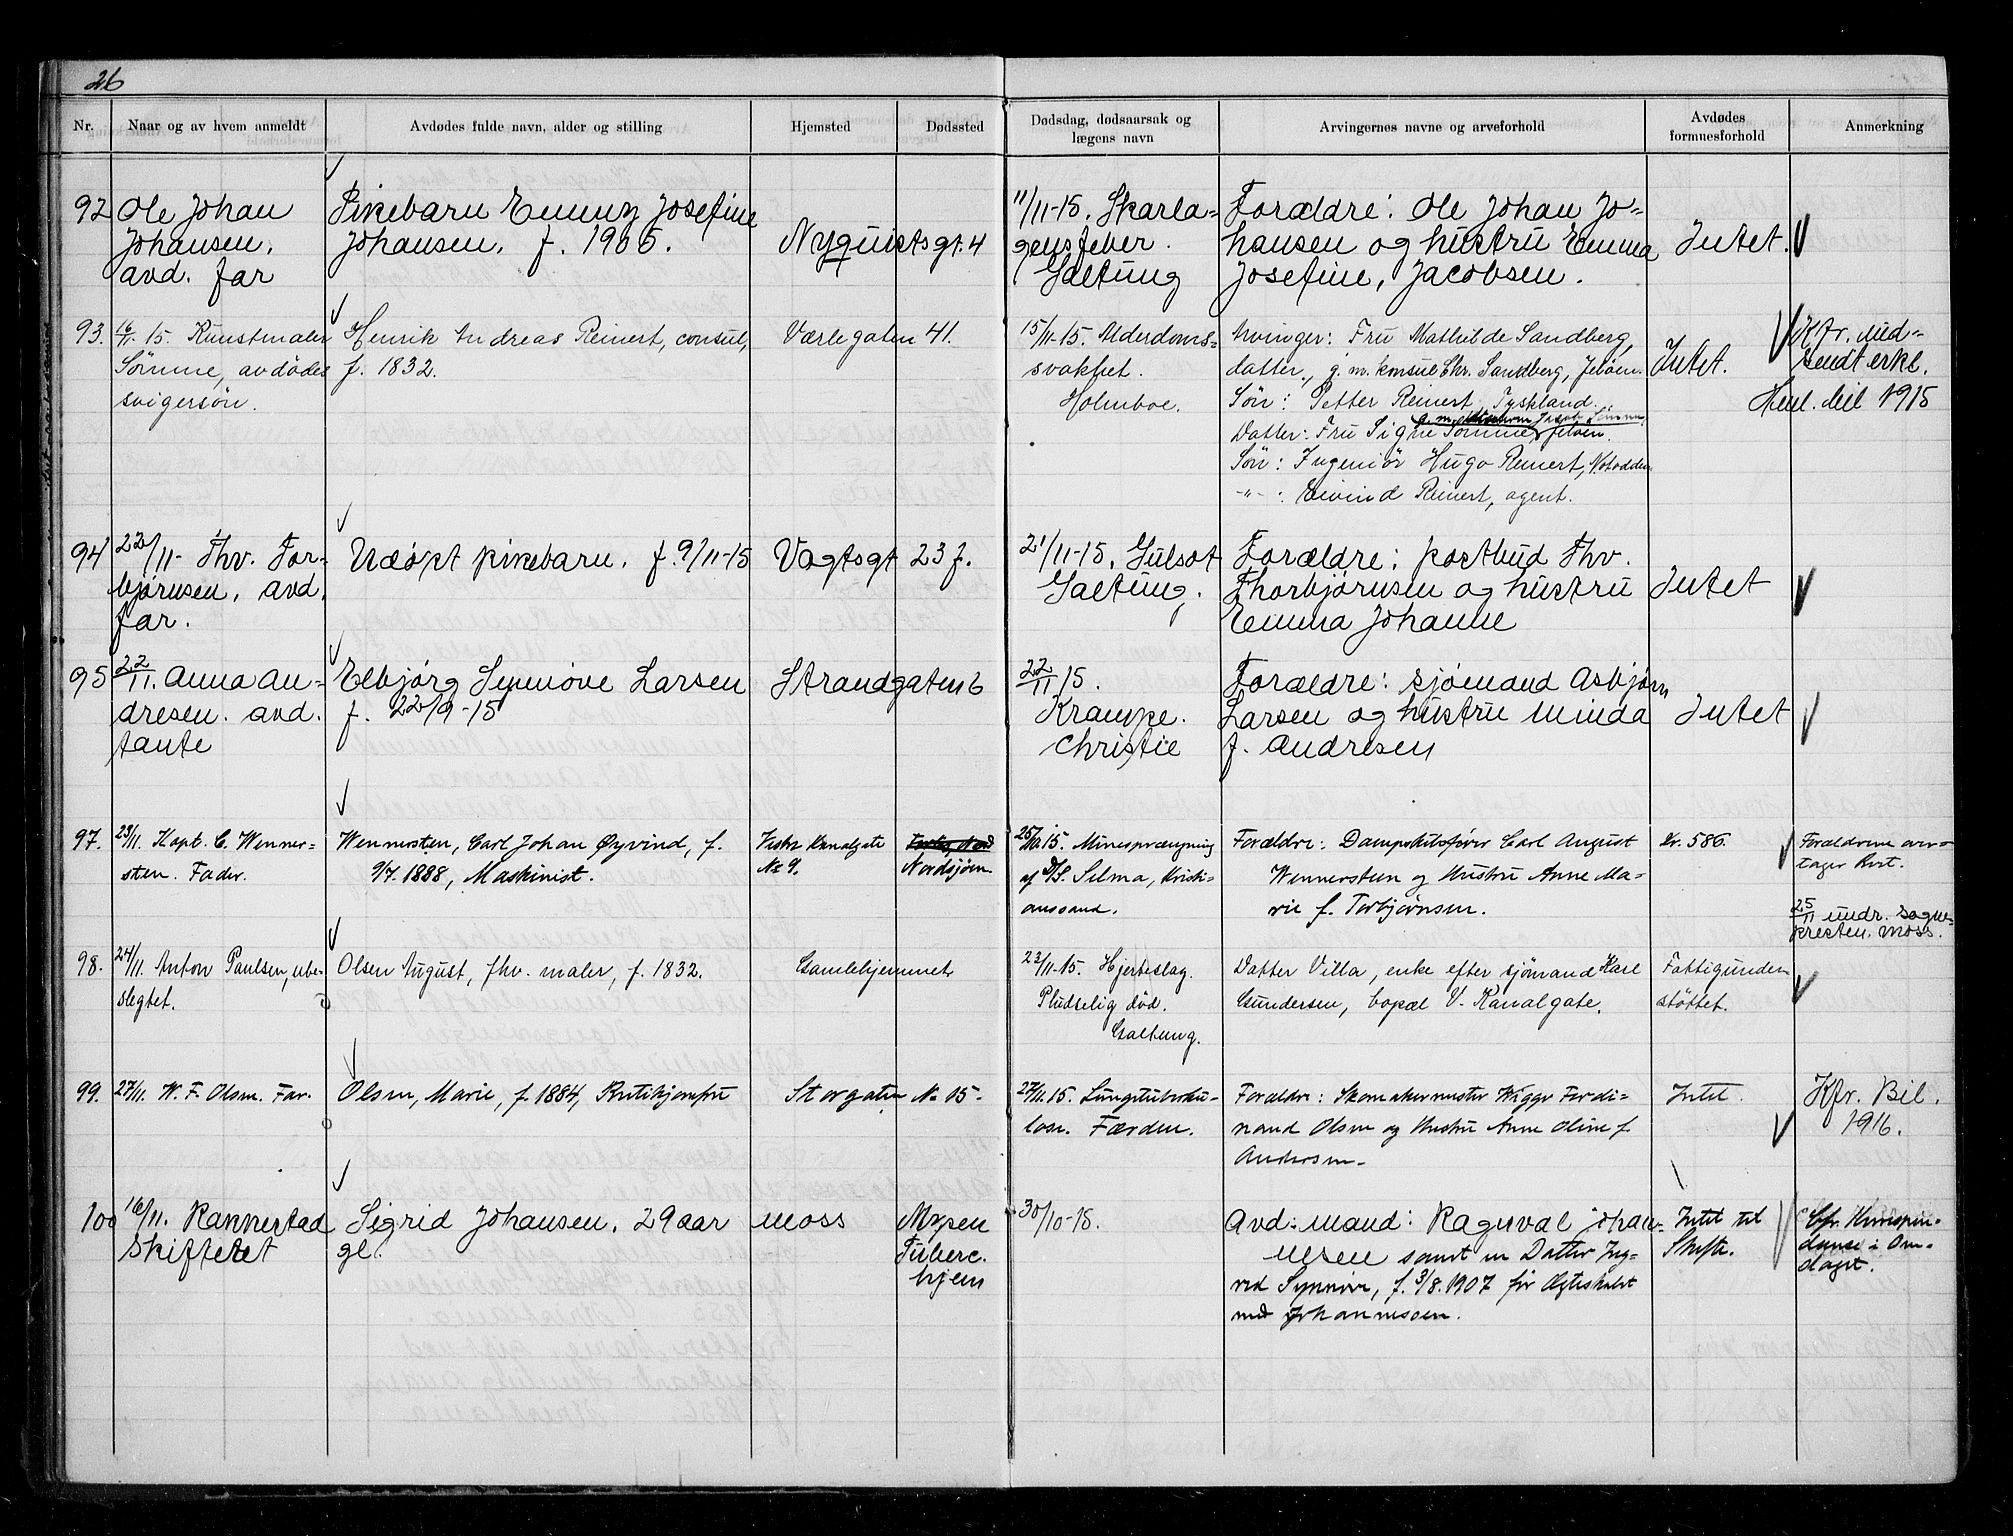 26
Nr. Naar og av hvem anmeldt Avdødes fulde navn, alder og stilling Hjemsted Dødssted Dødsdag, dødsaarsak og lægens navn Arvingernes navne og arveforhold Avdødes formuesforhold Anmerkning
92 Ole Johan Pikebarn Emmy Josefine 11/11-15. Skarla- Forældre: Ole Johan Jo-
Johansen, Johansen, f. 1905. Nyquistsgt. 4 gensfeber. hansen og hustru Emma Intet.
avd. far Galtung Josefine, Jacobsen.
93. 16/11 15. Kunstmaler Henrik Andreas Reinert, consul, Værlegaten 41. 15/11-15. Alderdoms- Arvinger: Fru Mathilde Sandberg, Kfr. ind-
Sømme, avdødes f. 1832. svakhet. datter, g. m. konsul Chr. Sandberg, Jeløen. Intet. sendt erkl.
svigersøn. Holmboe. Søn: Petter Reinert, Tyskland. bil 1915
g. m. Jacob Sømme
Datter: Fru Signe Sømme, Jeløen.
Søn: Ingeniør Hugo Reinert, Notodden
-"- : Eivind Reinert, agent.
94 22/11- Thv. Tor- Udøpt pikebarn. f. 9/11-15 Vogtsgt 23 f. 21/11-15. Gulsot Forældre: postbud Thv.
bjørnsen, avd. Galtung. Thorbjørnsen og hustru Intet
far. Emma Johanne
95 22/11. Anna An- Elbjørg Synnøve Larsen Strandgaten 6 22/11 15. Forældre: sjømand Asbjørn
dresen. avd. f. 22/9-15 Krampe. Larsen og hustru Minda Intet
tante Christie f. Andresen
97. 23/11. Kapt. C. Wenner- Wennersten, Carl Johan Øyvind, f. Vestre Kanalgate 25/10.15. Minesprængning Forældre: Dampskibsfører Carl August Kr. 586. Forældrene over-
sten. Fader. 9/7. 1888, Maskinist. № 9. Nordsjøen af D/S. Selma, Kristi- Wennersteen og Hustru Anne Ma- tager Boet.
anssand. rie f. Torbjørnsen. 25/11 undr. sogne-
presten. Moss.
98. 24/11. Anton Paulsen, ube- Olsen August, fhv. maler, f. 1832. Gamlehjemmet 23/11-15. Hjerteslag. Datter Villa, enke efter sjømand Karl Fattigunder-
slegtet. Pludselig død. Gundersen, bopæl V. Kanalgate. støttet.
Galtung.
99. 27/11. W. F. Olsen. Far. Olsen, Marie, f. 1884, Butikjomfru Storgaten № 15. 27/11.15. Lungetuberku- Forældre: Skomakermester Wiggo Ferdi- Intet. Kfr. Bil.
lose. Færden. nand Olsen og Hustru Anne Oline f. 1916.
Andersen.
100 16/11. Rannestad Sigrid Johansen, 29 aar Moss Mysen 30/10-15. Avd. mand: Ragnval Johan- Intet til Cfr. Korrespon-
Skifteret gl. Tuberc. nesen samt en Datter Ing- Skifte. dance i Om-
hjem rid Synnøve, f. 3/8. 1907 før Ægteskabet slaget.
med Johannessen.